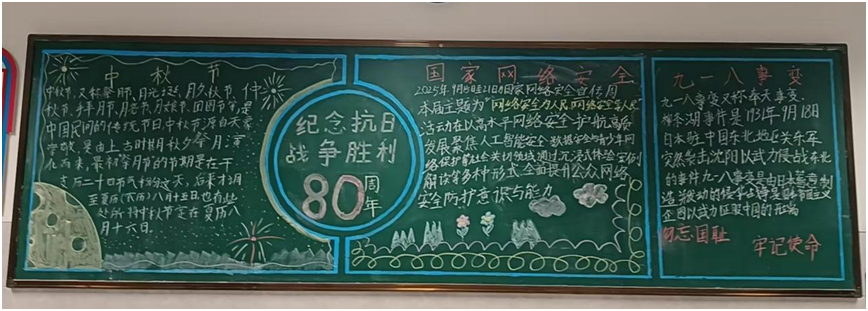 中秋节
中秋节,又称祭月节、月光诞、月夕、秋节、仲
秋节、拜月节、月娘节、团圆节等,是
中国民间的传统节日。中秋节源自天象
崇敬,由上古时期秋夕祭月演
化而来。最初祭月节的节期是在干
支历二十四节气秋分这天,后来才
至夏历八月十五日,也有些
地将中秋节定在夏历八
月十六日。
纪念抗日
战争胜利
80周年
国家网络安全
2025年 国家网络安全宣传周
本届主题为"网络安全为人民,网络安全靠人民"
活动在以高水平网络安全护航高质
发展聚焦人工智能安全、数据安全与青少年网
络保护等社会关切领域,通过沉浸式体验、
解读等多种形式,全面提升公众网络
安全防护意识与能力
九一八事变
九一八事变又称奉天事变、
柳条湖事件是1931年9月18日
日本驻中国东北地区关东军
突然袭击沈阳以武力侵占东北
的事件九一八事变是由日本蓄意制
造 发动的侵华战争是日本帝国主义
企图以武力征服中国的开端
勿忘国耻
牢记使命